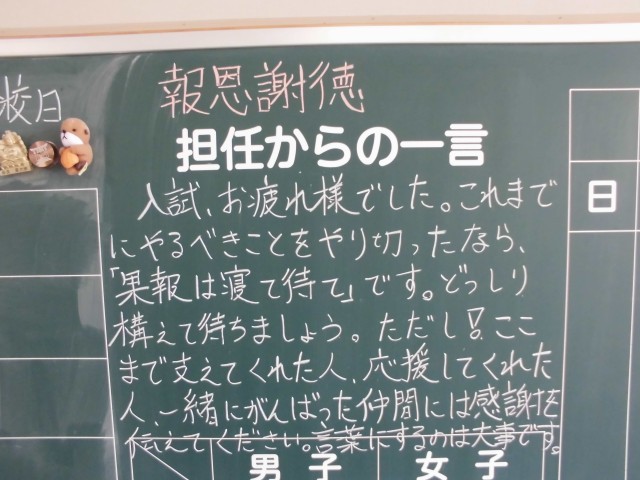 報恩謝徳
校日
担任からの一言
入試、お疲れ様でした。これまで
にやるべきことをやり切ったなら、
「果報は寝て待て」です。どっしり
構えて待ちましょう。ただし!ここ
まで支えてくれた人、応援してくれた
人、一緒にがんばった仲間には感謝を
伝えてください。言葉にするのは大事です。
日
男子
女子